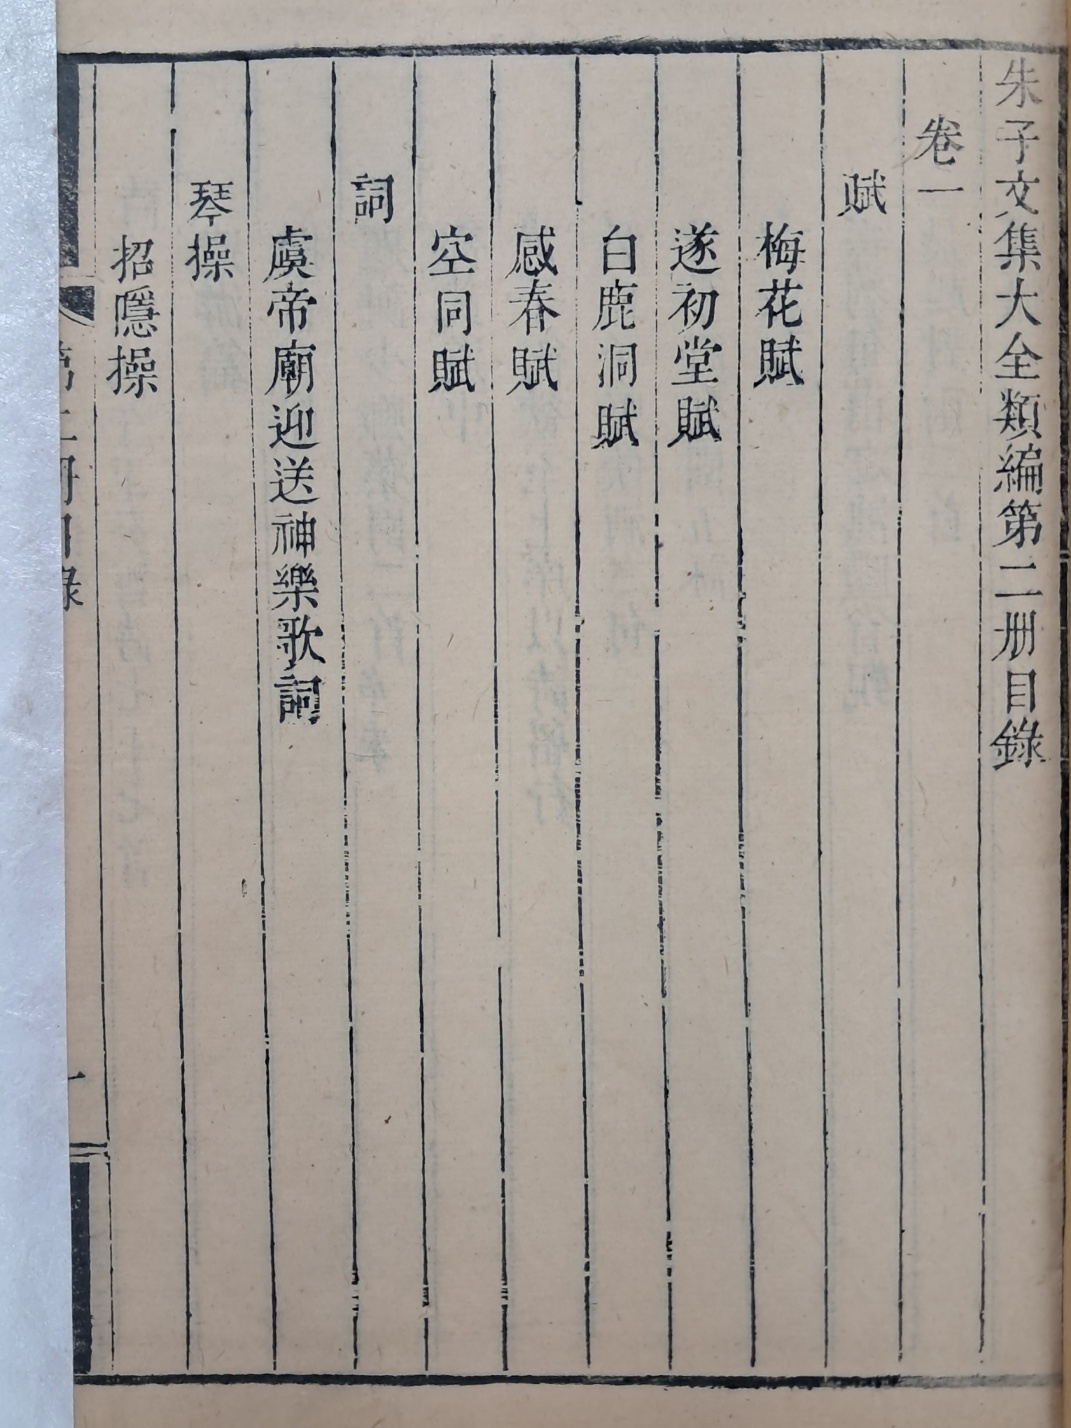 朱子文集大全類編第二册目錄
卷一
賦
梅花賦
遂初堂賦
白鹿洞賦
感春賦
空同賦
詞
虞帝廟迎送神樂歌詞
琴操
招隱操
第二册目錄
一